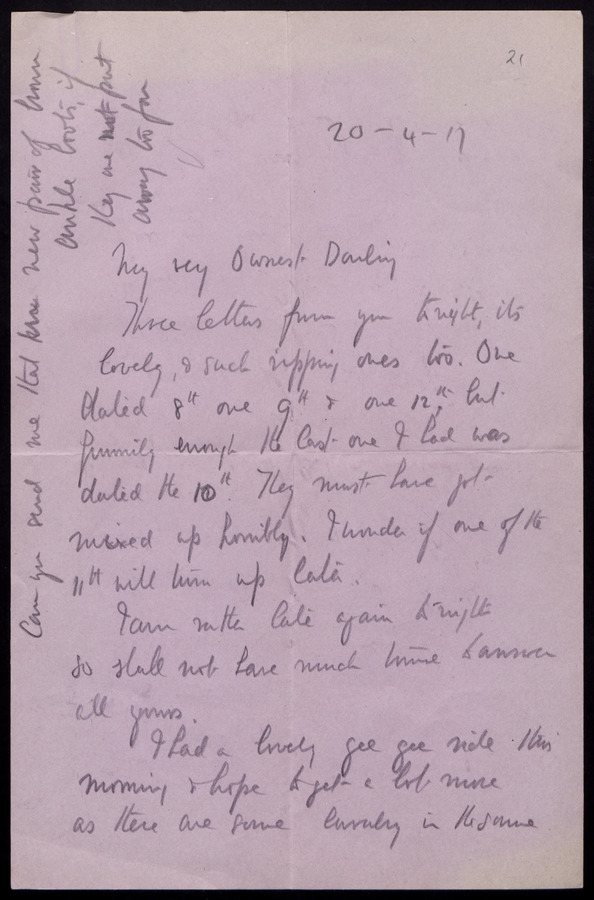 21
20-4-17
My very Ownest Darling
Three letters from you tonight, its
lovely, & such ripping ones too. One
dated 8th one 9th & one 12th, but
funnily enough the last one I had was
dated the 10th. They must have got
mixed up horribly. I wonder if one of the
11th will turn up later.
I am rather late again tonight
so shall not have much time to answer
all yours.
I had a lovely gee gee ride this
morning & hope to get a lot more
as there are some cavalry in the same
Can you send me that new pair of brown
ankle boots, if
they are not put
away too far